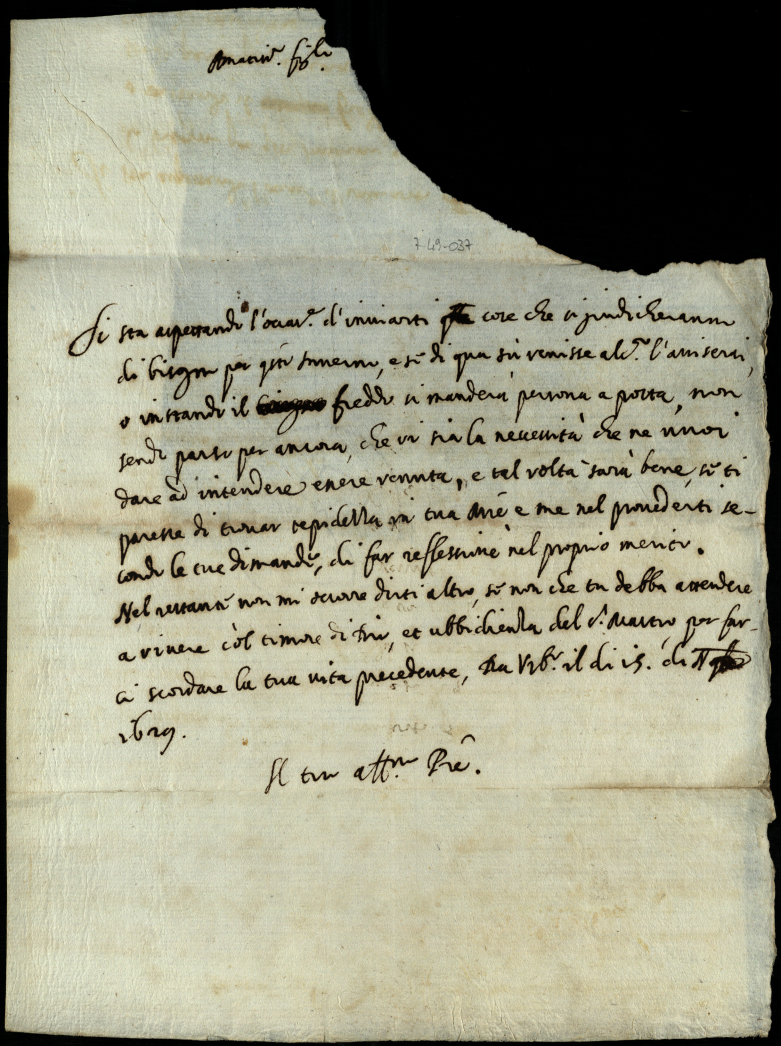 Amatis.mo fig.lo
7-49-037
Si sta aspettando l'occas.e d'inviarti q.lle cose che si giudicheranno
di bisogno per q.sto Inverno, e se di qua sù venisse alc.o l'aviserai,
o instando il freddo si manderà persona a posta, non
sendo parso per ancora, che vi sia la necessità che ne vuoi
dare ad intendere essere venuta, e tal volta sarà bene, se ti
paresse di trovar tepidezza in tua Mre e me nel provederti se-
condo le tue dimande, di far reflessione nel proprio merito.
Nel restante non mi occorre dirti altro, se non che tu debba attendere
a vivere col timore di Dio, et ubbidienza del s.r Mastro, per far-
ci scordare la tua vita precedente, Da Urb.o il dì 15. di
1629.
Il tuo aff.mo Pre.